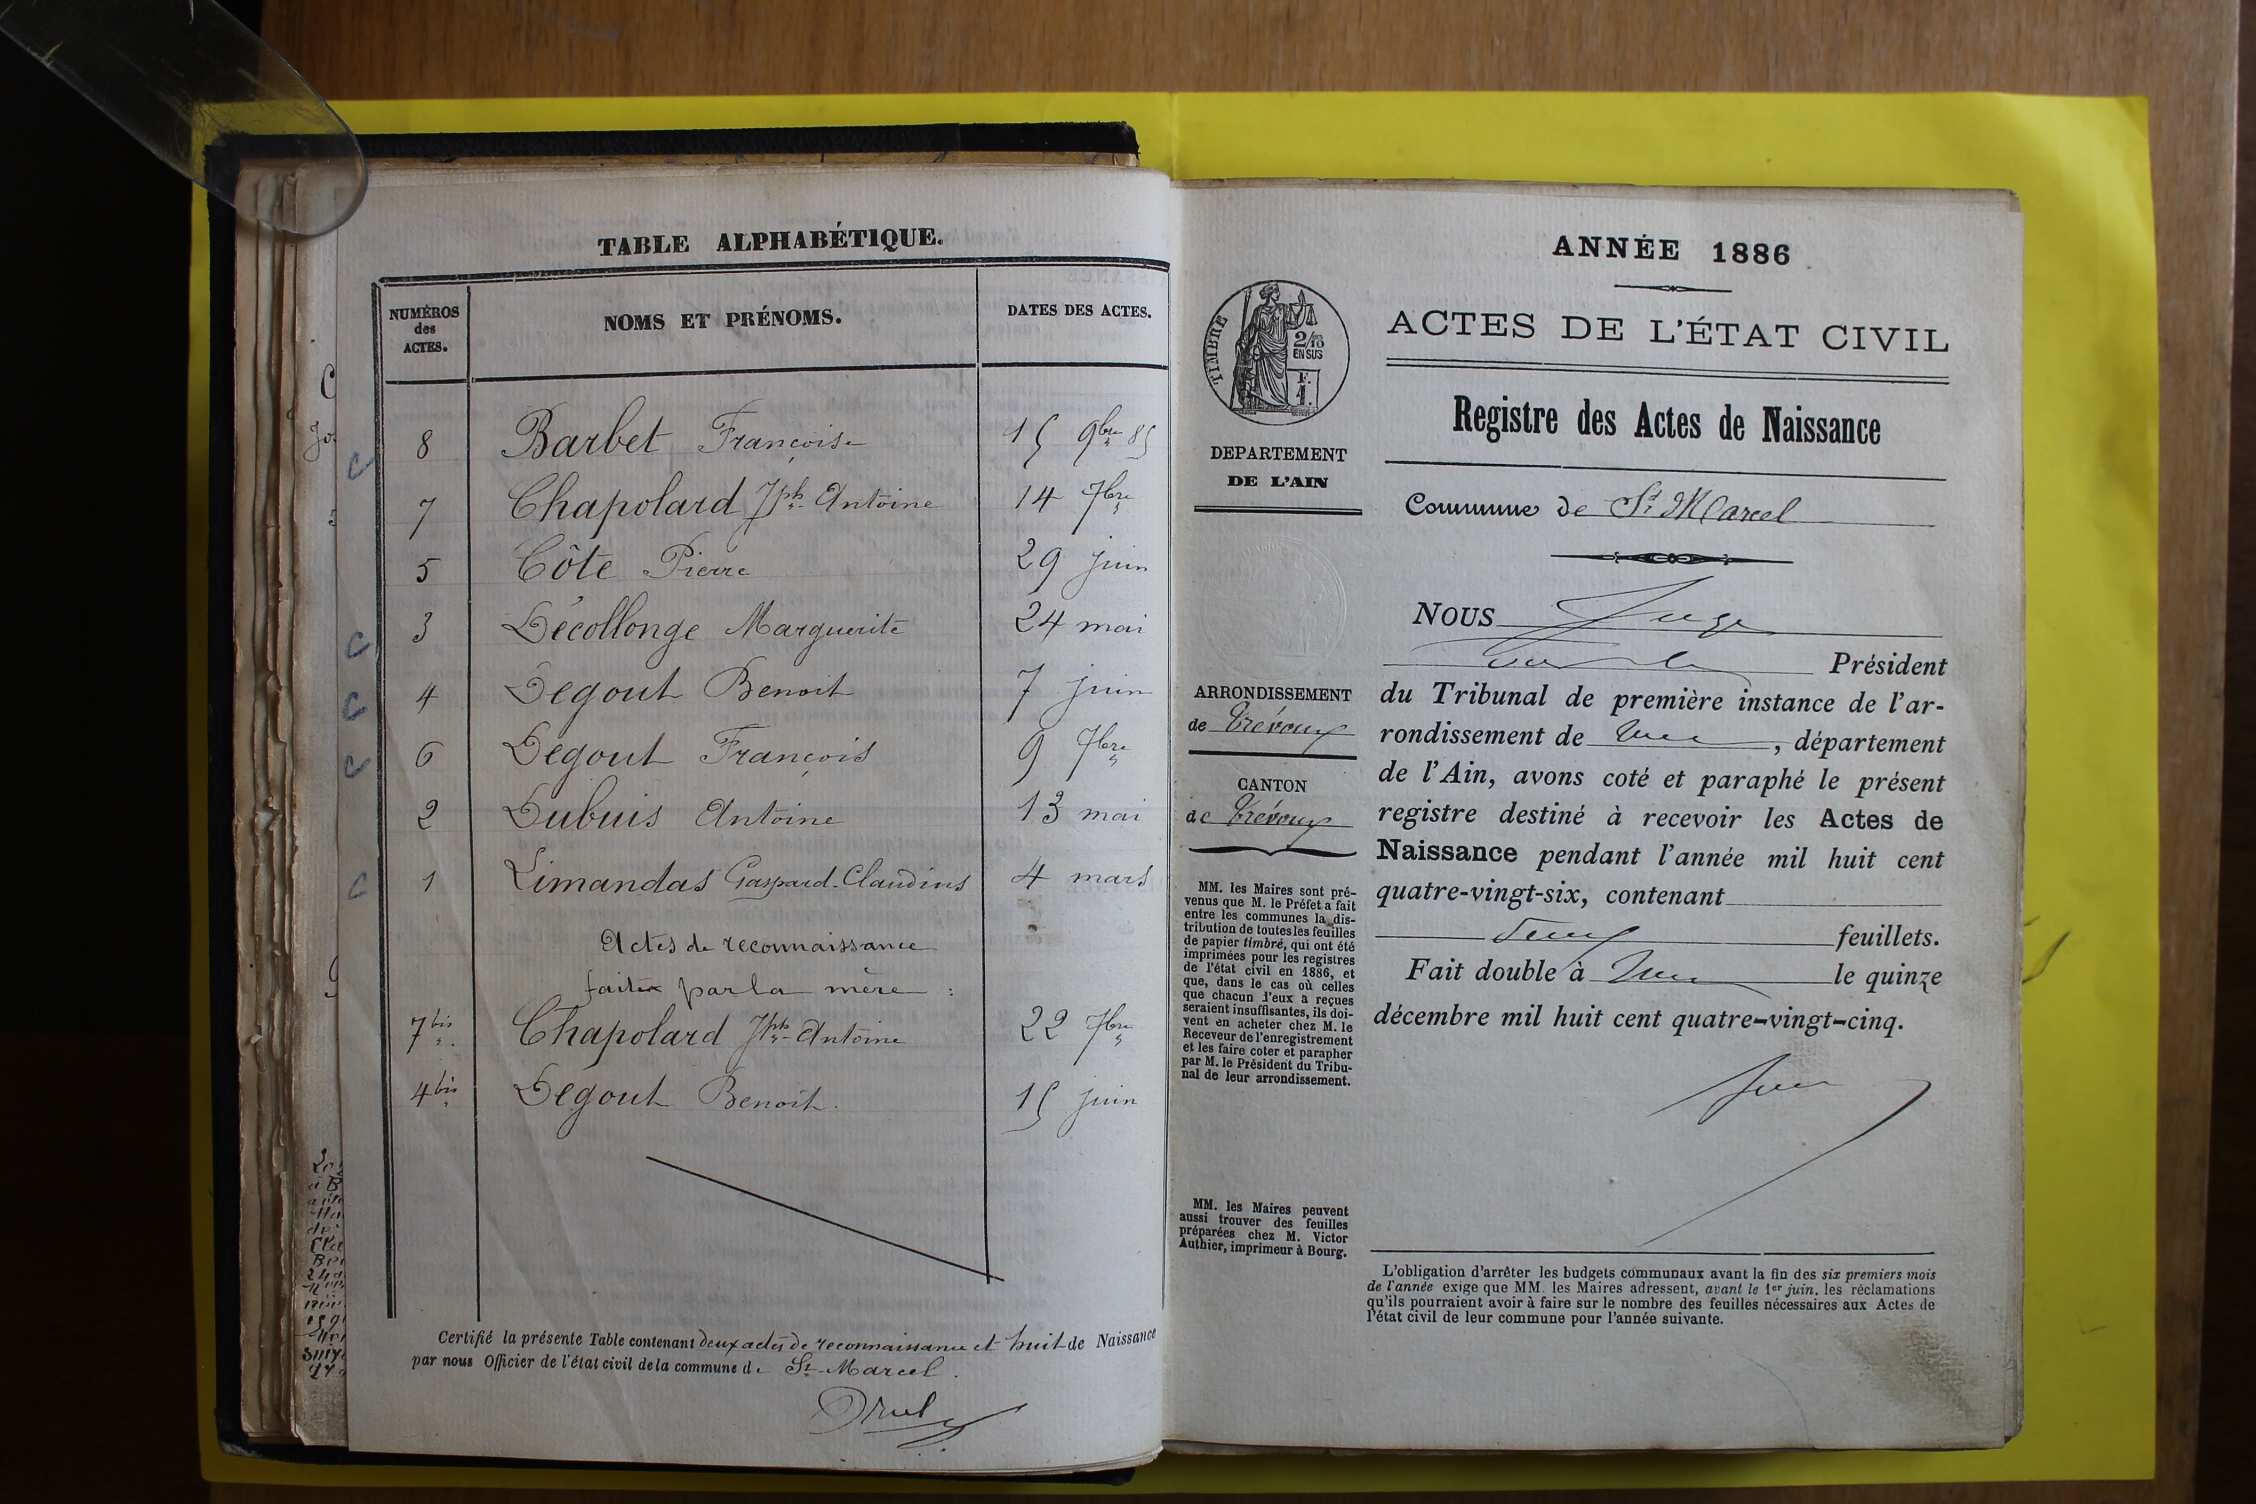 TABLE ALPHABÉTIQUE.
NUMÉROS des ACTES. NOMS ET PRÉNOMS. DATES DES ACTES.
8 Barbet Françoise 15 9bre 85
7 Chapolard Jph Antoine 14 7bre
5 Côte Pierre 29 juin
3 Décollonge Marguerite 24 mai
4 Degout Benoit 7 juin
6 Degout François 9 7bre
2 Dubuis Antoine 13 mai
1 Limandas Gaspard-Claudius 4 mars
Actes de reconnaissance
faite par la mère :
7 bis Chapolard Jph Antoine 22 7bre
4 bis Degout Benoit. 15 juin
Certifié la présente Table contenant deux actes de reconnaissance et huit de Naissance
par nous Officier de l'état civil de la commune de St Marcel.
ANNÉE 1886
ACTES DE L'ÉTAT CIVIL
Registre des Actes de Naissance
Commune de St Marcel
TIMBRE
2/10
EN SUS
F.
1.
DEPARTEMENT
DE L'AIN
ARRONDISSEMENT
de Trévoux
CANTON
de Trévoux
MM. les Maires sont pré-
venus que M. le Préfet a fait
entre les communes la dis-
tribution de toutes les feuilles
de papier timbré, qui ont été
imprimées pour les registres
de l'état civil en 1886, et
que, dans le cas où celles
que chacun d'eux a reçues
seraient insuffisantes, ils doi-
vent en acheter chez M. le
Receveur de l'enregistrement
et les faire coter et parapher
par M. le Président du Tribu-
nal de leur arrondissement.
MM. les Maires peuvent
aussi trouver des feuilles
préparées chez M. Victor
Authier, imprimeur à Bourg.
NOUS Juge
Président
du Tribunal de première instance de l'ar-
rondissement de , département
de l'Ain, avons coté et paraphé le présent
registre destiné à recevoir les Actes de
Naissance pendant l'année mil huit cent
quatre-vingt-six, contenant
feuillets.
Fait double à le quinze
décembre mil huit cent quatre-vingt-cinq.
L'obligation d'arrêter les budgets communaux avant la fin des six premiers mois
de l'année exige que MM. les Maires adressent, avant le 1er juin, les réclamations
qu'ils pourraient avoir à faire sur le nombre des feuilles nécessaires aux Actes de
l'état civil de leur commune pour l'année suivante.